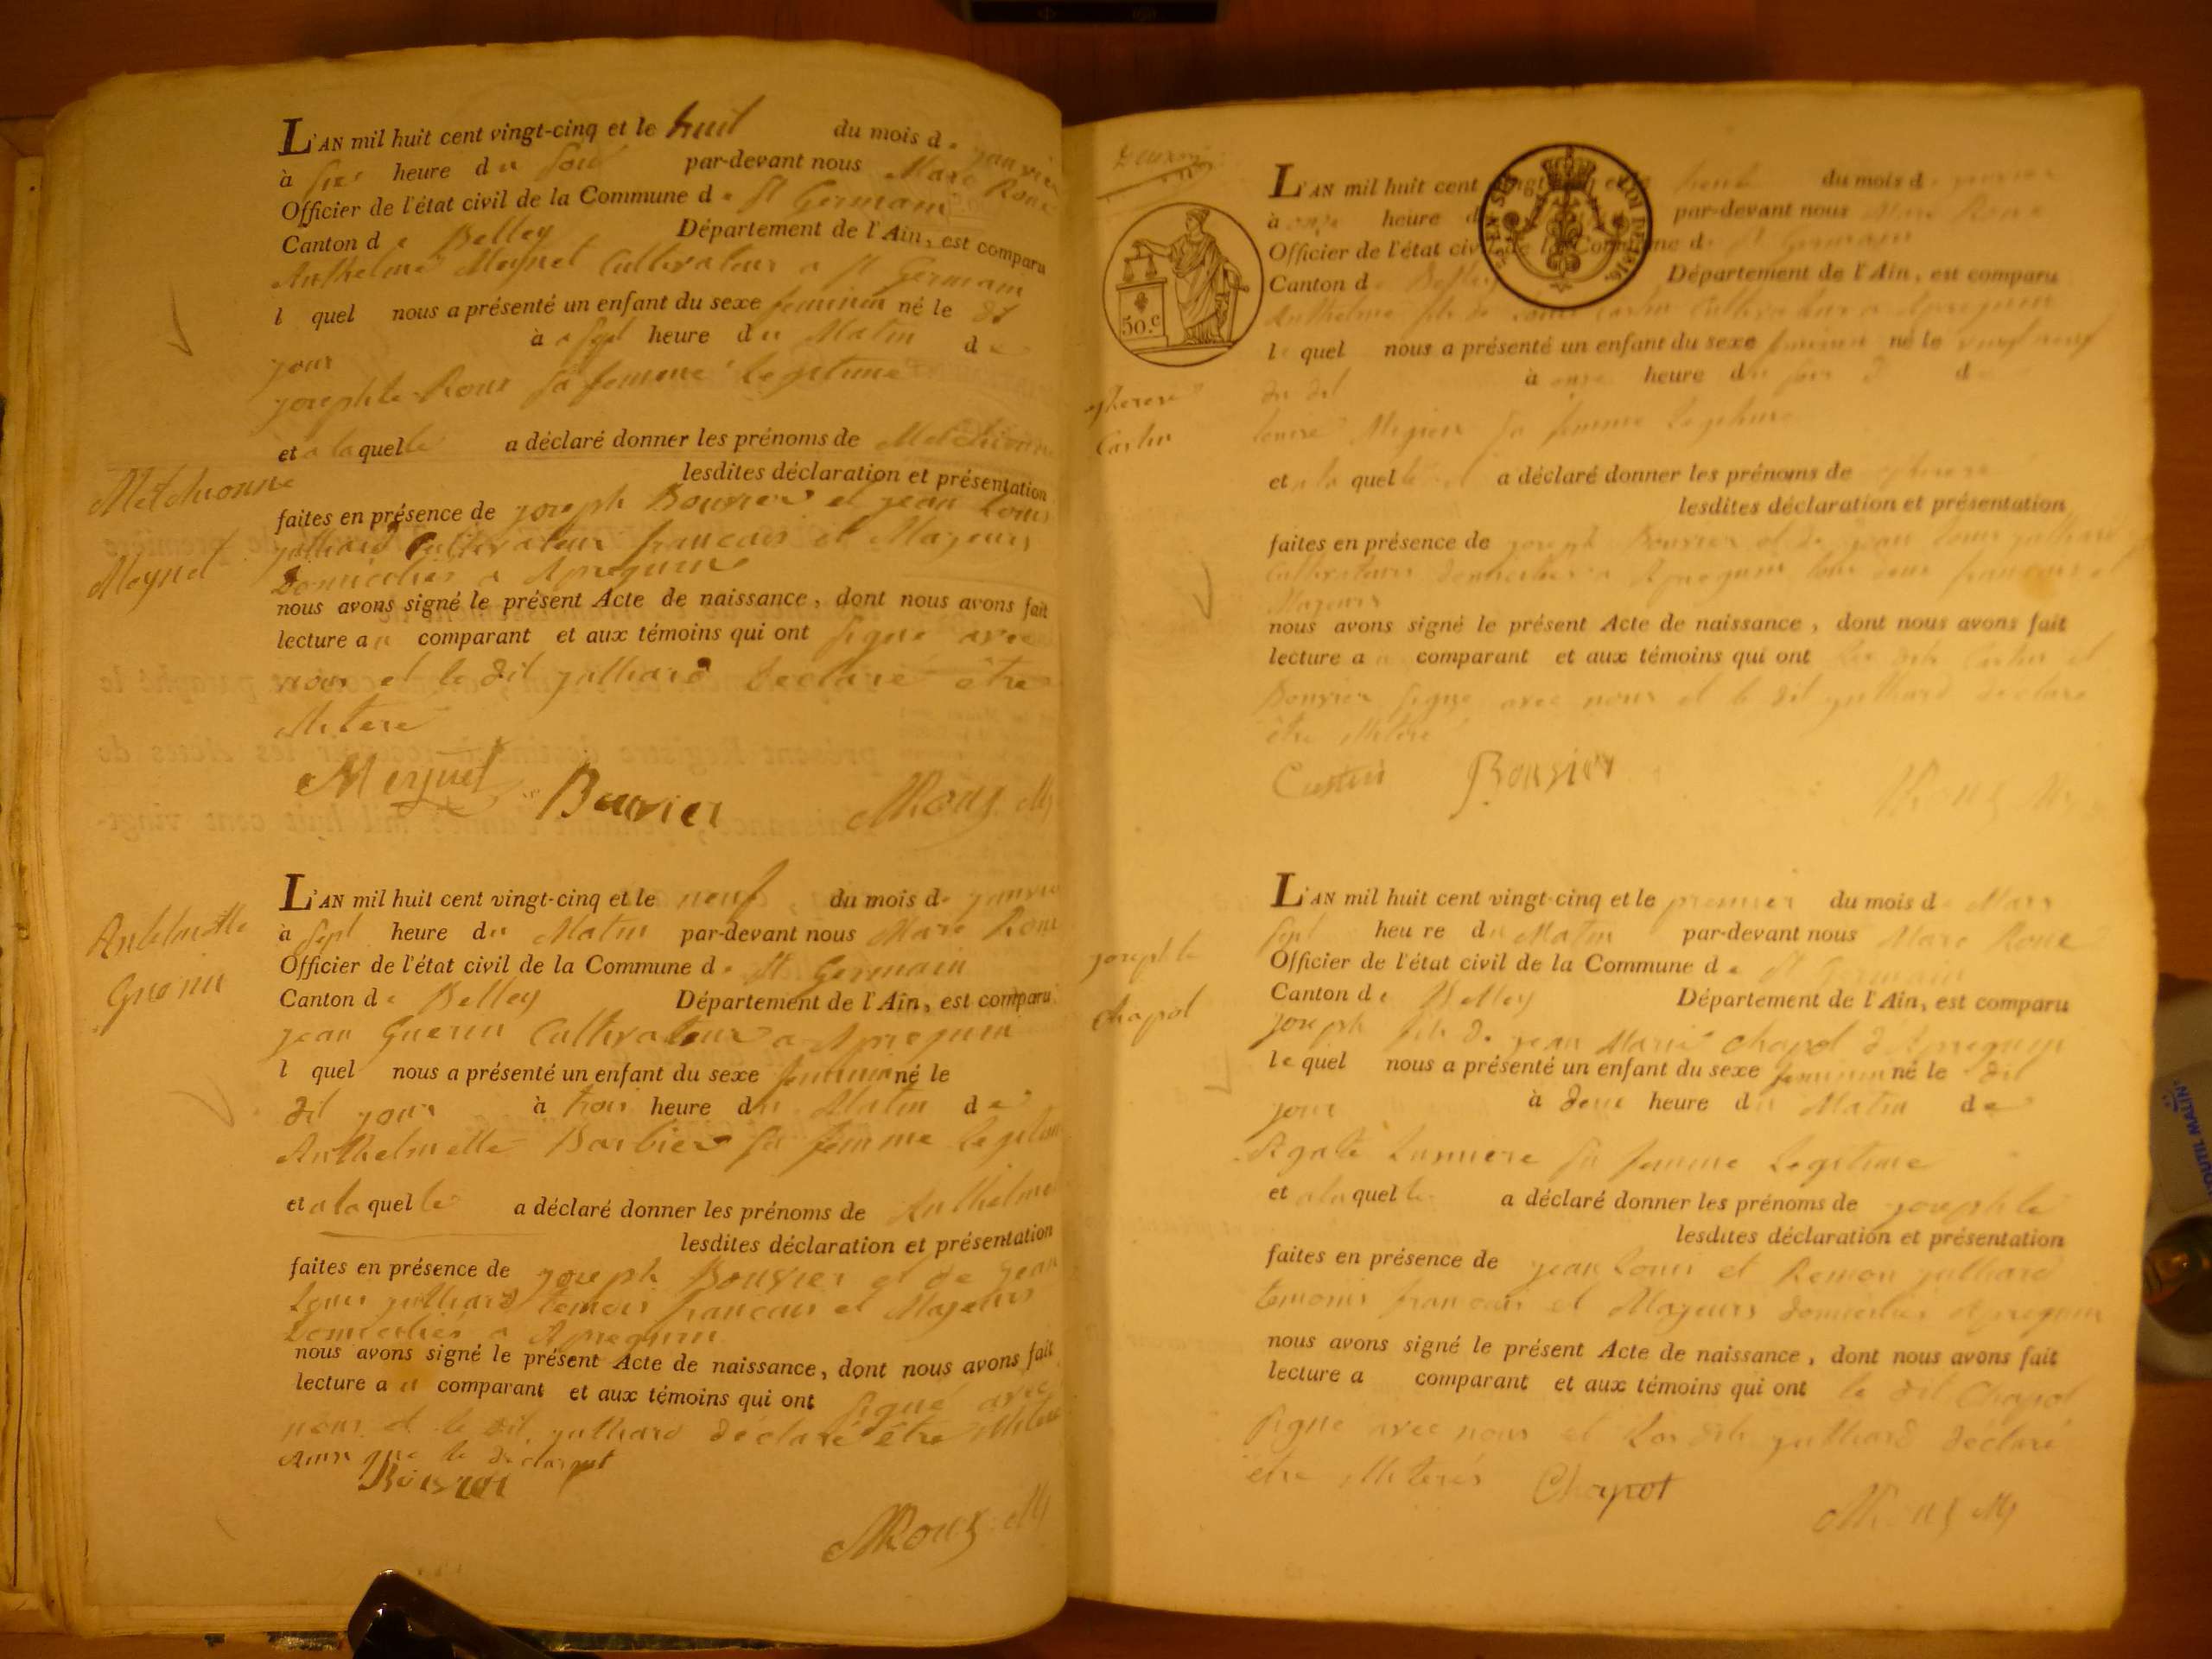 L'AN mil huit cent vingt-cinq et le huit du mois de janvier
à six heure du soir par-devant nous Marc Roux
Officier de l'état civil de la Commune de St Germain
Canton de Belley Département de l'Ain, est comparu
Anthelme Meynet Cultivateur a St Germain
l quel nous a présenté un enfant du sexe feminin né le dit
jour à sept heure du Matin de
josephte Roux sa femme legitime
et a laquelle a déclaré donner les prénoms de
lesdites déclaration et présentation
Meynet
faites en présence de joseph Bouvier et jean Louis
julliard Cultivateur francais et Majeurs
Domicilies a Apregnin
nous avons signé le présent Acte de naissance, dont nous avons fait
lecture au comparant et aux témoins qui ont signé avec
nous et le dit julliard declaré être
illiteré
Meynet Bouvier MRoux M
Guerin
L'AN mil huit cent vingt-cinq et le neuf du mois de janvier
à sept heure du Matin par-devant nous Marc Roux
Officier de l'état civil de la Commune de St Germain
Canton de Belley Département de l'Ain, est comparu
jean Guerin Cultivateur a Apregnin
l quel nous a présenté un enfant du sexe feminin né le
dit jour à trois heure du Matin de
Anthelmette Barbier sa femme legitime
et a laquelle a déclaré donner les prénoms de
lesdites déclaration et présentation
faites en présence de joseph Bouvier et de jean
Louis julliard temoins francais et Majeurs
Domiciliés a Apregnin
nous avons signé le présent Acte de naissance, dont nous avons fait
lecture au comparant et aux témoins qui ont signé avec
nous et le dit julliard déclaré être illiteré
ainsi que le declarant
Bouvier
MRoux M
L'AN mil huit cent vingt-cinq et le trente du mois de janvier
à onze heure du par-devant nous Marc Roux
Officier de l'état civil de la Commune de St Germain
50.c
Canton de Belley Département de l'Ain, est comparu
Anthelme fils de Castin Cultivateur a Apregnin
le quel nous a présenté un enfant du sexe feminin né le vingt neuf
du dit à onze heure du soir d
sa femme legitime
Castin
et a la quelle a déclaré donner les prénoms de
lesdites déclaration et présentation
faites en présence de joseph Bouvier et de jean Louis julliard
Cultivateurs domicilies a Apregnin tous deux francais et
Majeurs
nous avons signé le présent Acte de naissance, dont nous avons fait
lecture au comparant et aux témoins qui ont les dits Castin et
Bouvier signé avec nous et le dit julliard declaré
être illiteré
Castin Bouvier
L'AN mil huit cent vingt-cinq et le premier du mois de Mars
sept heure du Matin par-devant nous Marc Roux
josephte
Officier de l'état civil de la Commune de St Germain
Canton de Belley Département de l'Ain, est comparu
chapot
joseph fils de jean Marie chapot d'Apregnin
le quel nous a présenté un enfant du sexe feminin né le dit
jour à deux heure du Matin de
sa femme legitime
et a laquelle a déclaré donner les prénoms de josephte
lesdites déclaration et présentation
faites en présence de jean Louis et Remon julliard
temoins francais et Majeurs domicilies Apregnin
nous avons signé le présent Acte de naissance, dont nous avons fait
lecture a comparant et aux témoins qui ont le dit Chapot
signé avec nous et Les dits julliard déclaré
etre illiterés
Chapot